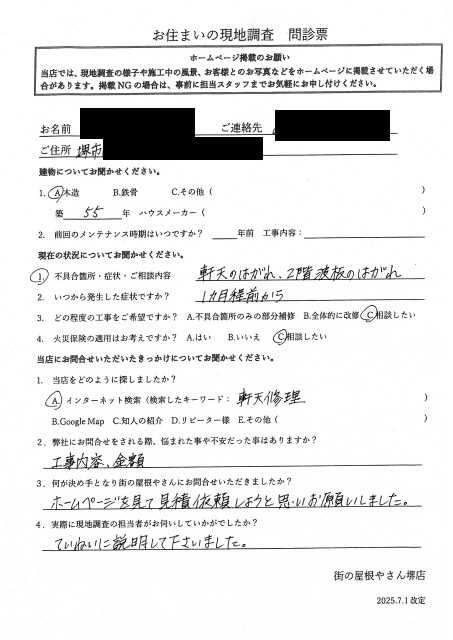 お住まいの現地調査 問診票
ホームページ掲載のお願い
当店では、現地調査の様子や施工中の風景、お客様とのお写真などをホームページに掲載させていただく場
合があります。掲載NGの場合は、事前に担当スタッフまでお気軽にお申し付けください。
お名前 ご連絡先
ご住所 堺市
建物についてお聞かせください。
1. A.木造 B.鉄骨 C.その他（ ）
築 55 年 ハウスメーカー（ ）
2. 前回のメンテナンス時期はいつですか？ 年前 工事内容：
現在の状況についてお聞かせください。
1. 不具合箇所・症状・ご相談内容 軒天のはがれ、2階波板のはがれ
2. いつから発生した症状ですか？ 1カ月程前から
3. どの程度の工事をご希望ですか？ A.不具合箇所のみの部分補修 B.全体的に改修 C.相談したい
4. 火災保険の適用はお考えですか？ A.はい B.いいえ C.相談したい
当店にお問合せいただいたきっかけについてお聞かせください。
1. 当店をどのように探しましたか？
A. インターネット検索（検索したキーワード： 軒天修理 ）
B.Google Map C.知人の紹介 D.リピーター様 E.その他（ ）
2. 弊社にお問合せをされる際、悩まれた事や不安だった事はありますか？
工事内容、金額
3. 何が決め手となり街の屋根やさんにお問合せいただきましたか？
ホームページを見て見積依頼しようと思いお願いしました。
4. 実際に現地調査の担当者がお伺いしていかがでしたか？
ていねいに説明して下さいました。
街の屋根やさん堺店
2025.7.1 改定